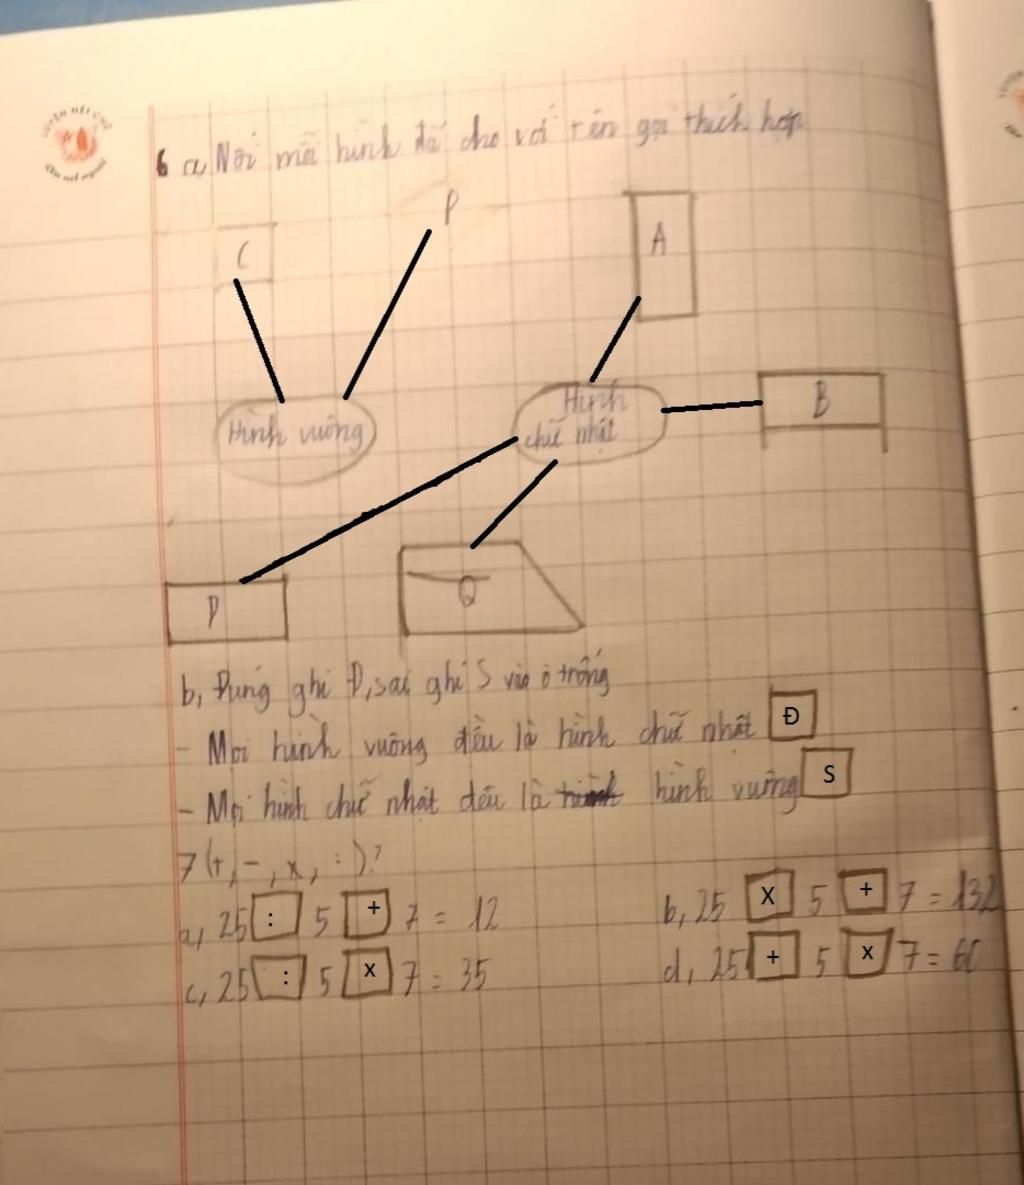 LUYỆN NÉT CHỮ
6 a, Nối mỗi hình đã cho với tên gọi thích hợp
C
P
A
Hình vuông
Hình
chữ nhật
B
D
Q
b, Đúng ghi Đ, sai ghi S vào ô trống
- Mọi hình vuông đều là hình chữ nhật Đ
- Mọi hình chữ nhật đều là hình vuông S
7 (+, -, x, :)?
a, 25 : 5 + 7 = 12
b, 25 X 5 + 7 = 132
c, 25 : 5 x 7 = 35
d, 25 + 5 x 7 = 60